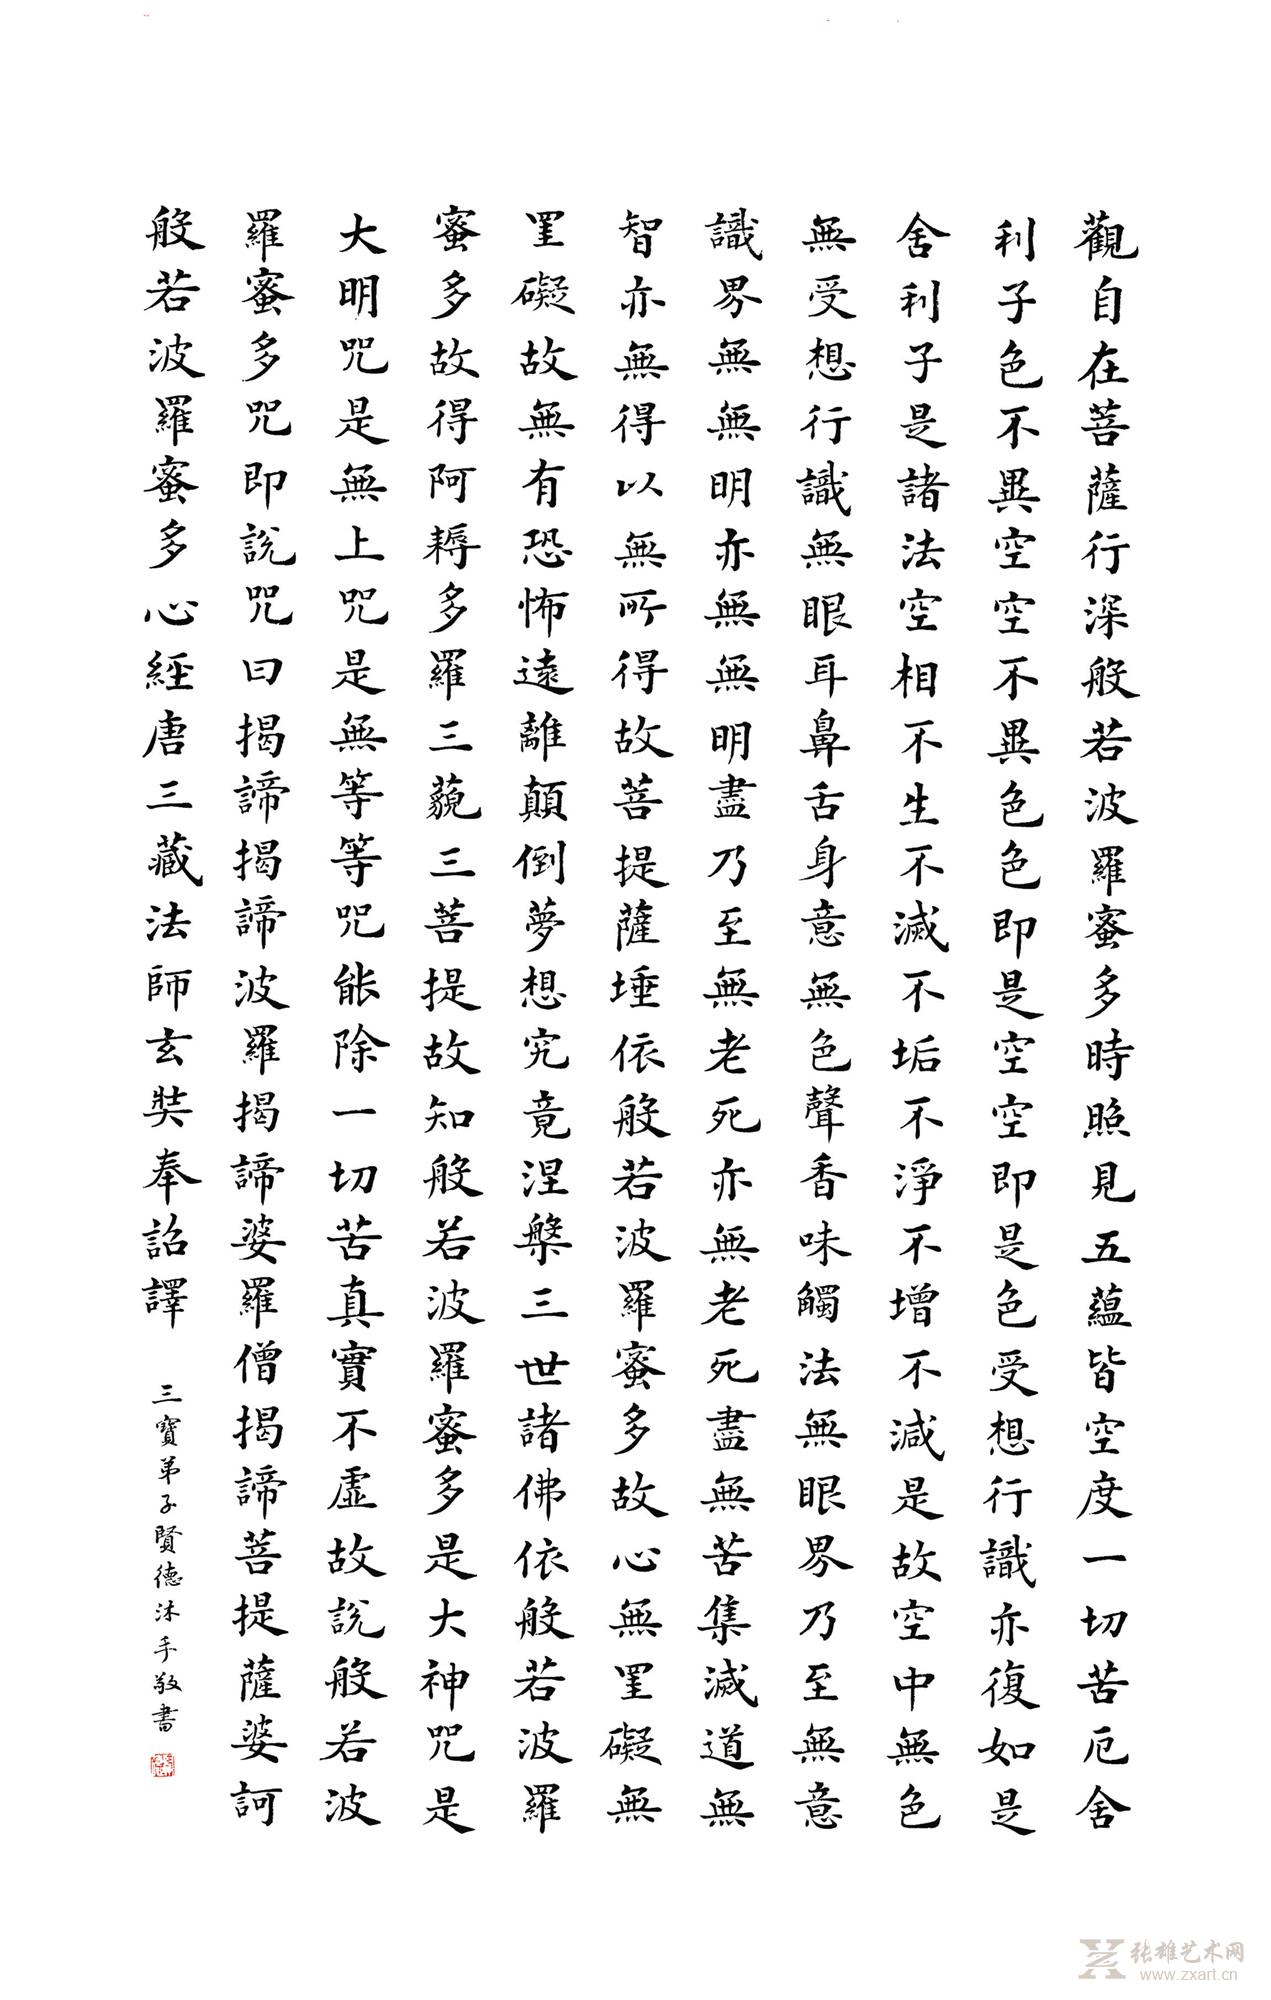 觀自在菩薩行深般若波羅蜜多時照見五蘊皆空度一切苦厄舍
利子色不異空空不異色色即是空空即是色受想行識亦復如是
舍利子是諸法空相不生不滅不垢不淨不增不減是故空中無色
無受想行識無眼耳鼻舌身意無色聲香味觸法無眼界乃至無意
識界無無明亦無無明盡乃至無老死亦無老死盡無苦集滅道無
智亦無得以無所得故菩提薩埵依般若波羅蜜多故心無罣礙無
罣礙故無有恐怖遠離顛倒夢想究竟涅槃三世諸佛依般若波羅
蜜多故得阿耨多羅三藐三菩提故知般若波羅蜜多是大神咒是
大明咒是無上咒是無等等咒能除一切苦真實不虛故說般若波
羅蜜多咒即說咒曰揭諦揭諦波羅揭諦婆羅僧揭諦菩提薩婆訶
般若波羅蜜多心經唐三藏法師玄奘奉詔譯
三寶弟子賢德沐手敬書
张雄艺术网
www.zxart.cn